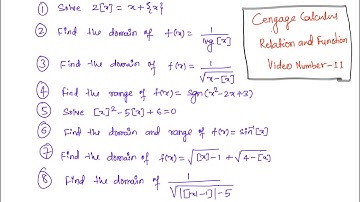 ① Solve 2[x] = x + {x}
② Find the domain of f(x) = 1/log[x]
③ Find the domain of f(x) = 1/√(x-[x])
④ find the range of f(x) = sgn(x²-2x+3)
⑤ Solve [x]²-5[x]+6=0
⑥ Find the domain and range of f(x) = sin⁻¹[x]
⑦ Find the domain of f(x) = √([x]-1) + √(4-[x])
⑧ Find the domain of 1/√(|[|x|-1]|-5)
Cengage Calculus
Relation and Function
Video Number-11